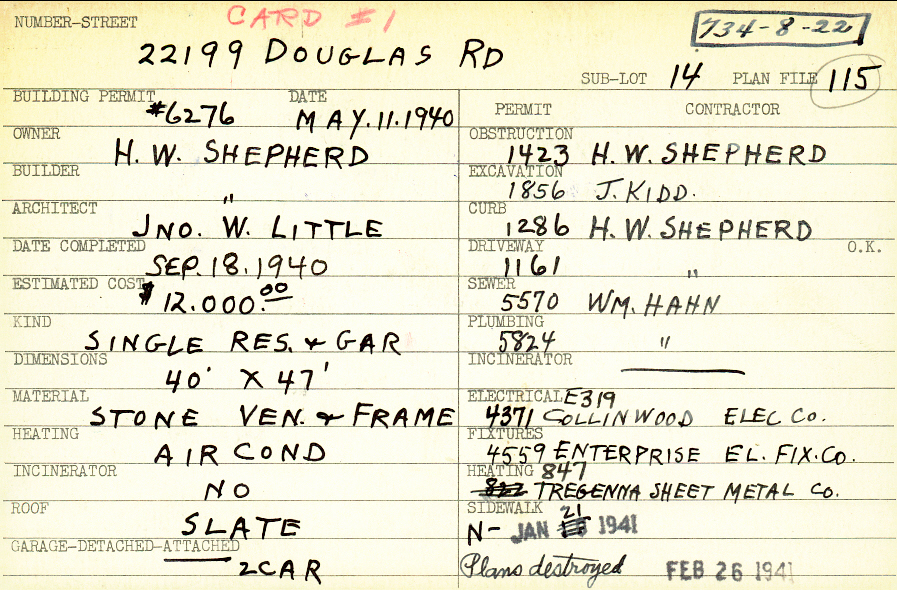 CARD #1
NUMBER-STREET
734-8-22
22199 DOUGLAS RD
SUB-LOT 14 PLAN FILE 115
BUILDING PERMIT DATE
#6276 MAY.11.1940
OWNER
H. W. SHEPHERD
BUILDER
"
ARCHITECT
JNO. W. LITTLE
DATE COMPLETED
SEP. 18. 1940
ESTIMATED COST
$12.000.00
KIND
SINGLE RES. & GAR
DIMENSIONS
40' X 47'
MATERIAL
STONE VEN. & FRAME
HEATING
AIR COND
INCINERATOR
NO
ROOF
SLATE
GARAGE-DETACHED-ATTACHED
2 CAR
PERMIT CONTRACTOR
OBSTRUCTION
1423 H. W. SHEPHERD
EXCAVATION
1856 J. KIDD.
CURB
1286 H. W. SHEPHERD
DRIVEWAY O.K.
1161 "
SEWER
5570 WM. HAHN
PLUMBING
5824 "
INCINERATOR
ELECTRICAL E319
4371 COLLINWOOD ELEC CO.
FIXTURES
4559 ENTERPRISE EL. FIX. CO.
HEATING 847
822 TREGENNA SHEET METAL CO.
SIDEWALK 21
N- JAN 1941
Plans destroyed FEB 26 1941